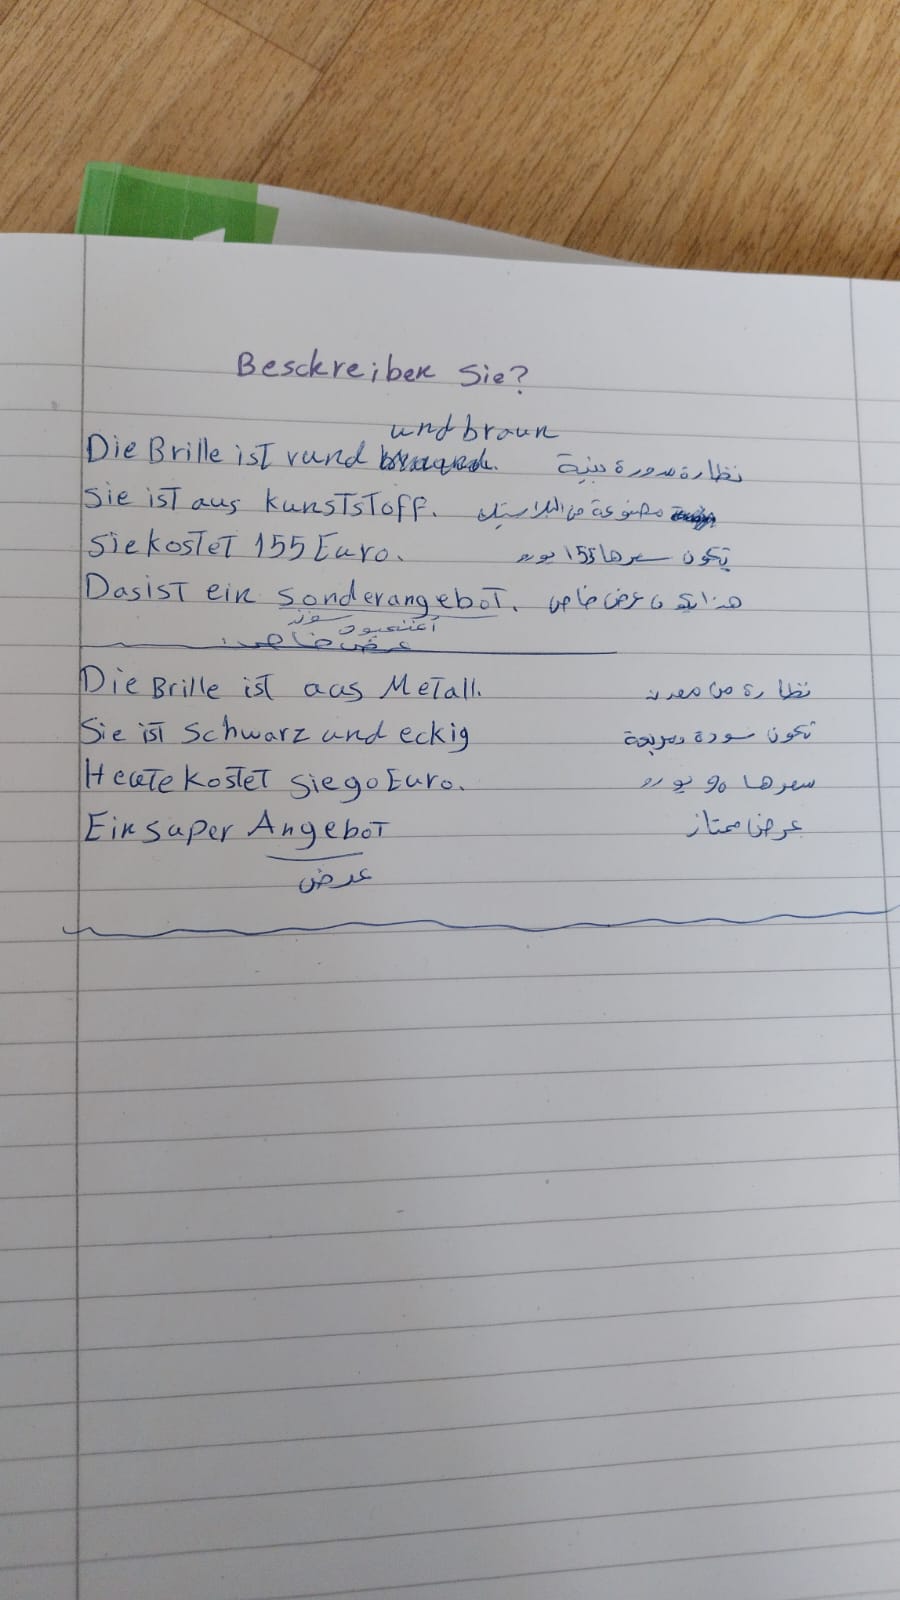 Beschreiben Sie?
und braun
Die Brille ist rund نظارة مدورة بنية
Sie ist aus Kunststoff. مصنوعة من البلاستيك
Sie kostet 155 Euro. تكون سعرها 155 يورو
Das ist ein Sonderangebot. هذا يكون عرض خاص
عرض خاص
Die Brille ist aus Metall. نظارة من معدن
Sie ist Schwarz und eckig تكون سودة ومربعة
Heute kostet sie 90 Euro. سعرها 90 يورو
Ein super Angebot عرض ممتاز
عرض